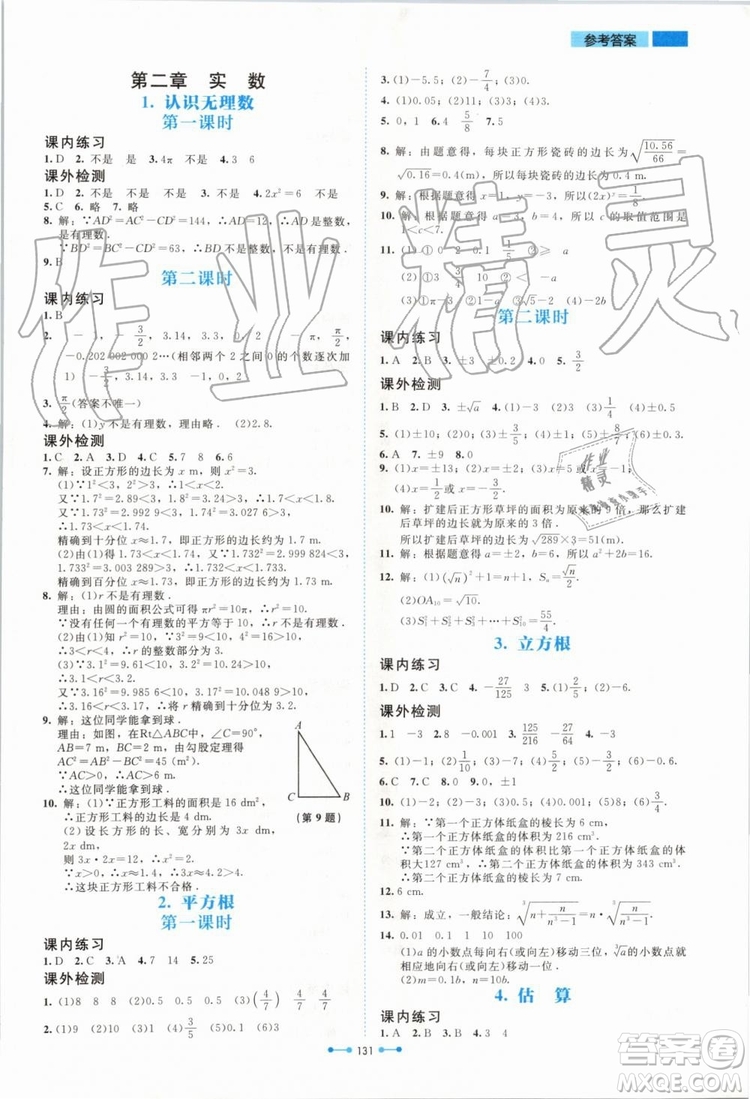 参考答案
第二章 实 数
1. 认识无理数
第一课时
课内练习
1. D 2. 不是 是 3.4π 不是 4.3 6
课外检测
1. D 2. 不是 不是 3. 不是 4. 是 不是 不是
5. C 6. 略 7. 略
8. 解：∵AD²=AC²-CD²=144，∴AD=12，∴AD是整数，
是有理数．
∵BD²=BC²-CD²=63，∴BD不是整数，不是有理数．
9. B
第二课时
课内练习
1. B
-0.202 002 000 2…(相邻两个 2 之间 0 的个数逐次加
3. π/2(答案不唯一)
4. 解：(1)y不是有理数，理由略．(2)2.8
课外检测
1. C 2. A 3. D 4. C 5.7 8 6.6
7. 解：设正方形的边长为 x m，则 x²=3.
(1)∵1²=1，2²=4，∴1<x<2.
又∵1.7²=2.89，1.8²=3.24，∴1.7<x<1.8.
又∵1.73²=2.992 9，1.74²=3.027 6，
∴1.73<x<1.74.
精确到十分位 x≈1.7，即正方形的边长约为 1.7 m.
(2)由(1)得 1.73<x<1.74. 又∵1.732²=2.999 824<3，
1.733²=3.003 289>3，∴1.732<x<1.733.
精确到百分位 x≈1.73，即正方形的边长约为 1.73 m.
8. 解：(1)r 不是有理数．
理由：由圆的面积公式可得 πr²=10π，∴r²=10.
∵没有任何一个有理数的平方等于 10，∴r 不是有理数．
(2)∵3²<r²<4²，∴3<r<4.
∴r 的整数部分为 3.
(3)∵3.1²=9.61，3.2²=10.24，
∴3.1<r<3.2.
又∵3.15²=9.922 5，3.16²=9.985 6，
3.17²=10.048 9，
∴3.16<r<3.17，∴将 r 精确到十分位为 3.2.
9. 解：这位同学能拿到球．
理由：如图，在Rt△ABC中，∠C=90°，
AB=7 m，BC=2 m，由勾股定理得
AC²=AB²-BC²=7²-2²=45.
∵45>6²，
∴AC>6 m.
∴这位同学能拿到球．
A
C
B
(第 9 题)
10. 解：(1)∵正方形工料的面积是 16 dm²，
∴正方形工料的边长是 4 dm.
(2)设长方形的长、宽分别为 3x dm、2x
dm，
则 3x·2x=12，即 x²=2.
∵3x>4，
∴这块正方形工料不合格．
2. 平方根
第一课时
课内练习
1. D 2. C 3. A 4.7 14 5.25
课外检测
1. (1)8 (2)0.5 (3)0.9 (4)4/7 (5)4/7
2. (1)10 (2)0.2 (3)0.8 (4)9
3. (1)-5.5; (2)-7/4; (3)0.
4. (1)0.05 (2)1 (3)0.6
5. 0，1 6.4 5/8 7.5
8. 解：由题意得，每块正方形瓷砖的边长为√(10.56/66)
=√0.16=0.4(m)，所以每块瓷砖的边长为 0.4 m.
9. 解：根据题意得 x=1，y=3，所以 x+y=4.
10. 解：根据题意得 a=3，b=4，所以 c 的取值范围是
1<c<7.
(3)①π-3.14 ②4-2x ③a-b ④-2b
第二课时
课内练习
1. A 2. B 3. ±3 ±0.2 4.0 5. ±3/2
课外检测
1. B 2. D 3. ±√a 4. (1)9 (2)3 (3)1/4 (4)±0.5
5. (1)±10; (2)±0.9; (3)±6/7; (4)±15.
6. A 7. ±9 8.0
10. 解：扩建后正方形草坪的面积为原来的 9 倍，那么扩建
后草坪的边长就为原来的 3 倍．
所以扩建后草坪的边长为√289×3=51(m).
11. 解：根据题意得 a=2，b=6，所以 a²+2b=16.
12. 解：(1)(√n)²+1=n+1，Sₙ=√n/2.
(2)OA₁₀=√10.
(3)S₁²+S₂²+S₃²+…+S₁₀²=55/4.
3. 立方根
课内练习
1. D 2. C 3.4 4. -27/125 3 5. (1)2/5; (2)-0.6.
课外检测
1. 3 -3 2. B 3. -8 -0.001 125/216 -27/64 4. -2
5. (1)-1; (2)1/10; (3)-2/3; (4)-6; (5)6; (6)-1.
6. C 7. A 8. D 9.0，±1
10. (1)0.2; (2)-5/6; (3)-10; (4)-2; (5)-16; (6)3/4.
11. 解：∵第一个正方体纸盒的棱长为 6 cm，
∴第一个正方体纸盒的体积为 216 cm³.
∵第二个正方体纸盒的体积比第一个正方体纸盒的体
积大127 cm³，∴第二个正方体纸盒的体积为 343 cm³.
∴第二个正方体纸盒的棱长为 7 cm.
12. 6 cm.
13. 解：成立，一般结论：∛(n+n/(n³-1))=n∛(n/(n³-1)).
14. 0.01 0.1 1 10 100
(1)a 的小数点每向右(或向左)移动三位，∛a的小数点就
相应地向右(或向左)移动一位．
(2)m=0.1n.
4. 估 算
课内练习
1. A 2. B 3. B 4.3 4
131
作业精灵
答案圈
MXQE.COM